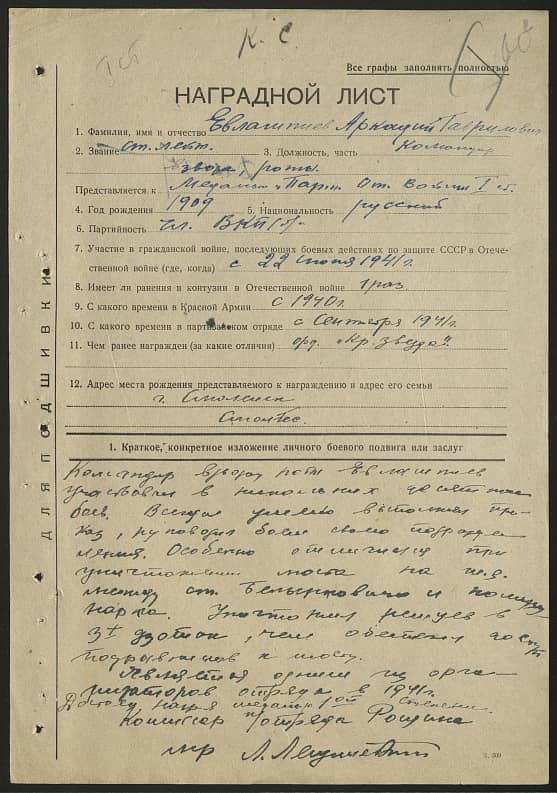 К. С.
1 ст.
Все графы заполнять полностью
НАГРАДНОЙ ЛИСТ
1. Фамилия, имя и отчество Евлампиев Аркадий Гаврилович
2. Звание ст. лейт. 3. Должность, часть Командир
взвода роты.
Представляется к Медалью „Парт. От. войны I ст.
4. Год рождения 1909 5. Национальность русский
6. Партийность чл. ВКП(б)
7. Участие в гражданской войне, последующих боевых действиях по защите СССР в Отече-
ственной войне (где, когда) с 22 июня 1941 г.
8. Имеет ли ранения и контузии в Отечественной войне 1 раз.
9. С какого времени в Красной Армии с 1940 г.
10. С какого времени в партизанском отряде с Сентября 1941 г.
11. Чем ранее награжден (за какие отличия) орд. „Кр. звезда".
12. Адрес места рождения представляемого к награждению и адрес его семьи
г. Смоленск
ДЛЯ ПОДШИВКИ
1. Краткое, конкретное изложение личного боевого подвига или заслуг
Командир взвода роты Евлампиев
участвовал в нескольких десятках
боев. Всегда умело выполнял при-
каз, руководил боем своего подразде-
ления. Особенно отличился при
уничтожении моста на ж.д.
между ст. Белынковичи и
Уничтожил немцев в
3х дзотах, чем обеспечил
подрывников к мосту.
Являлся одним из орга-
низаторов отряда в 1941 г.
Достоин награ медалью 1ой степени.
Комиссар отряда